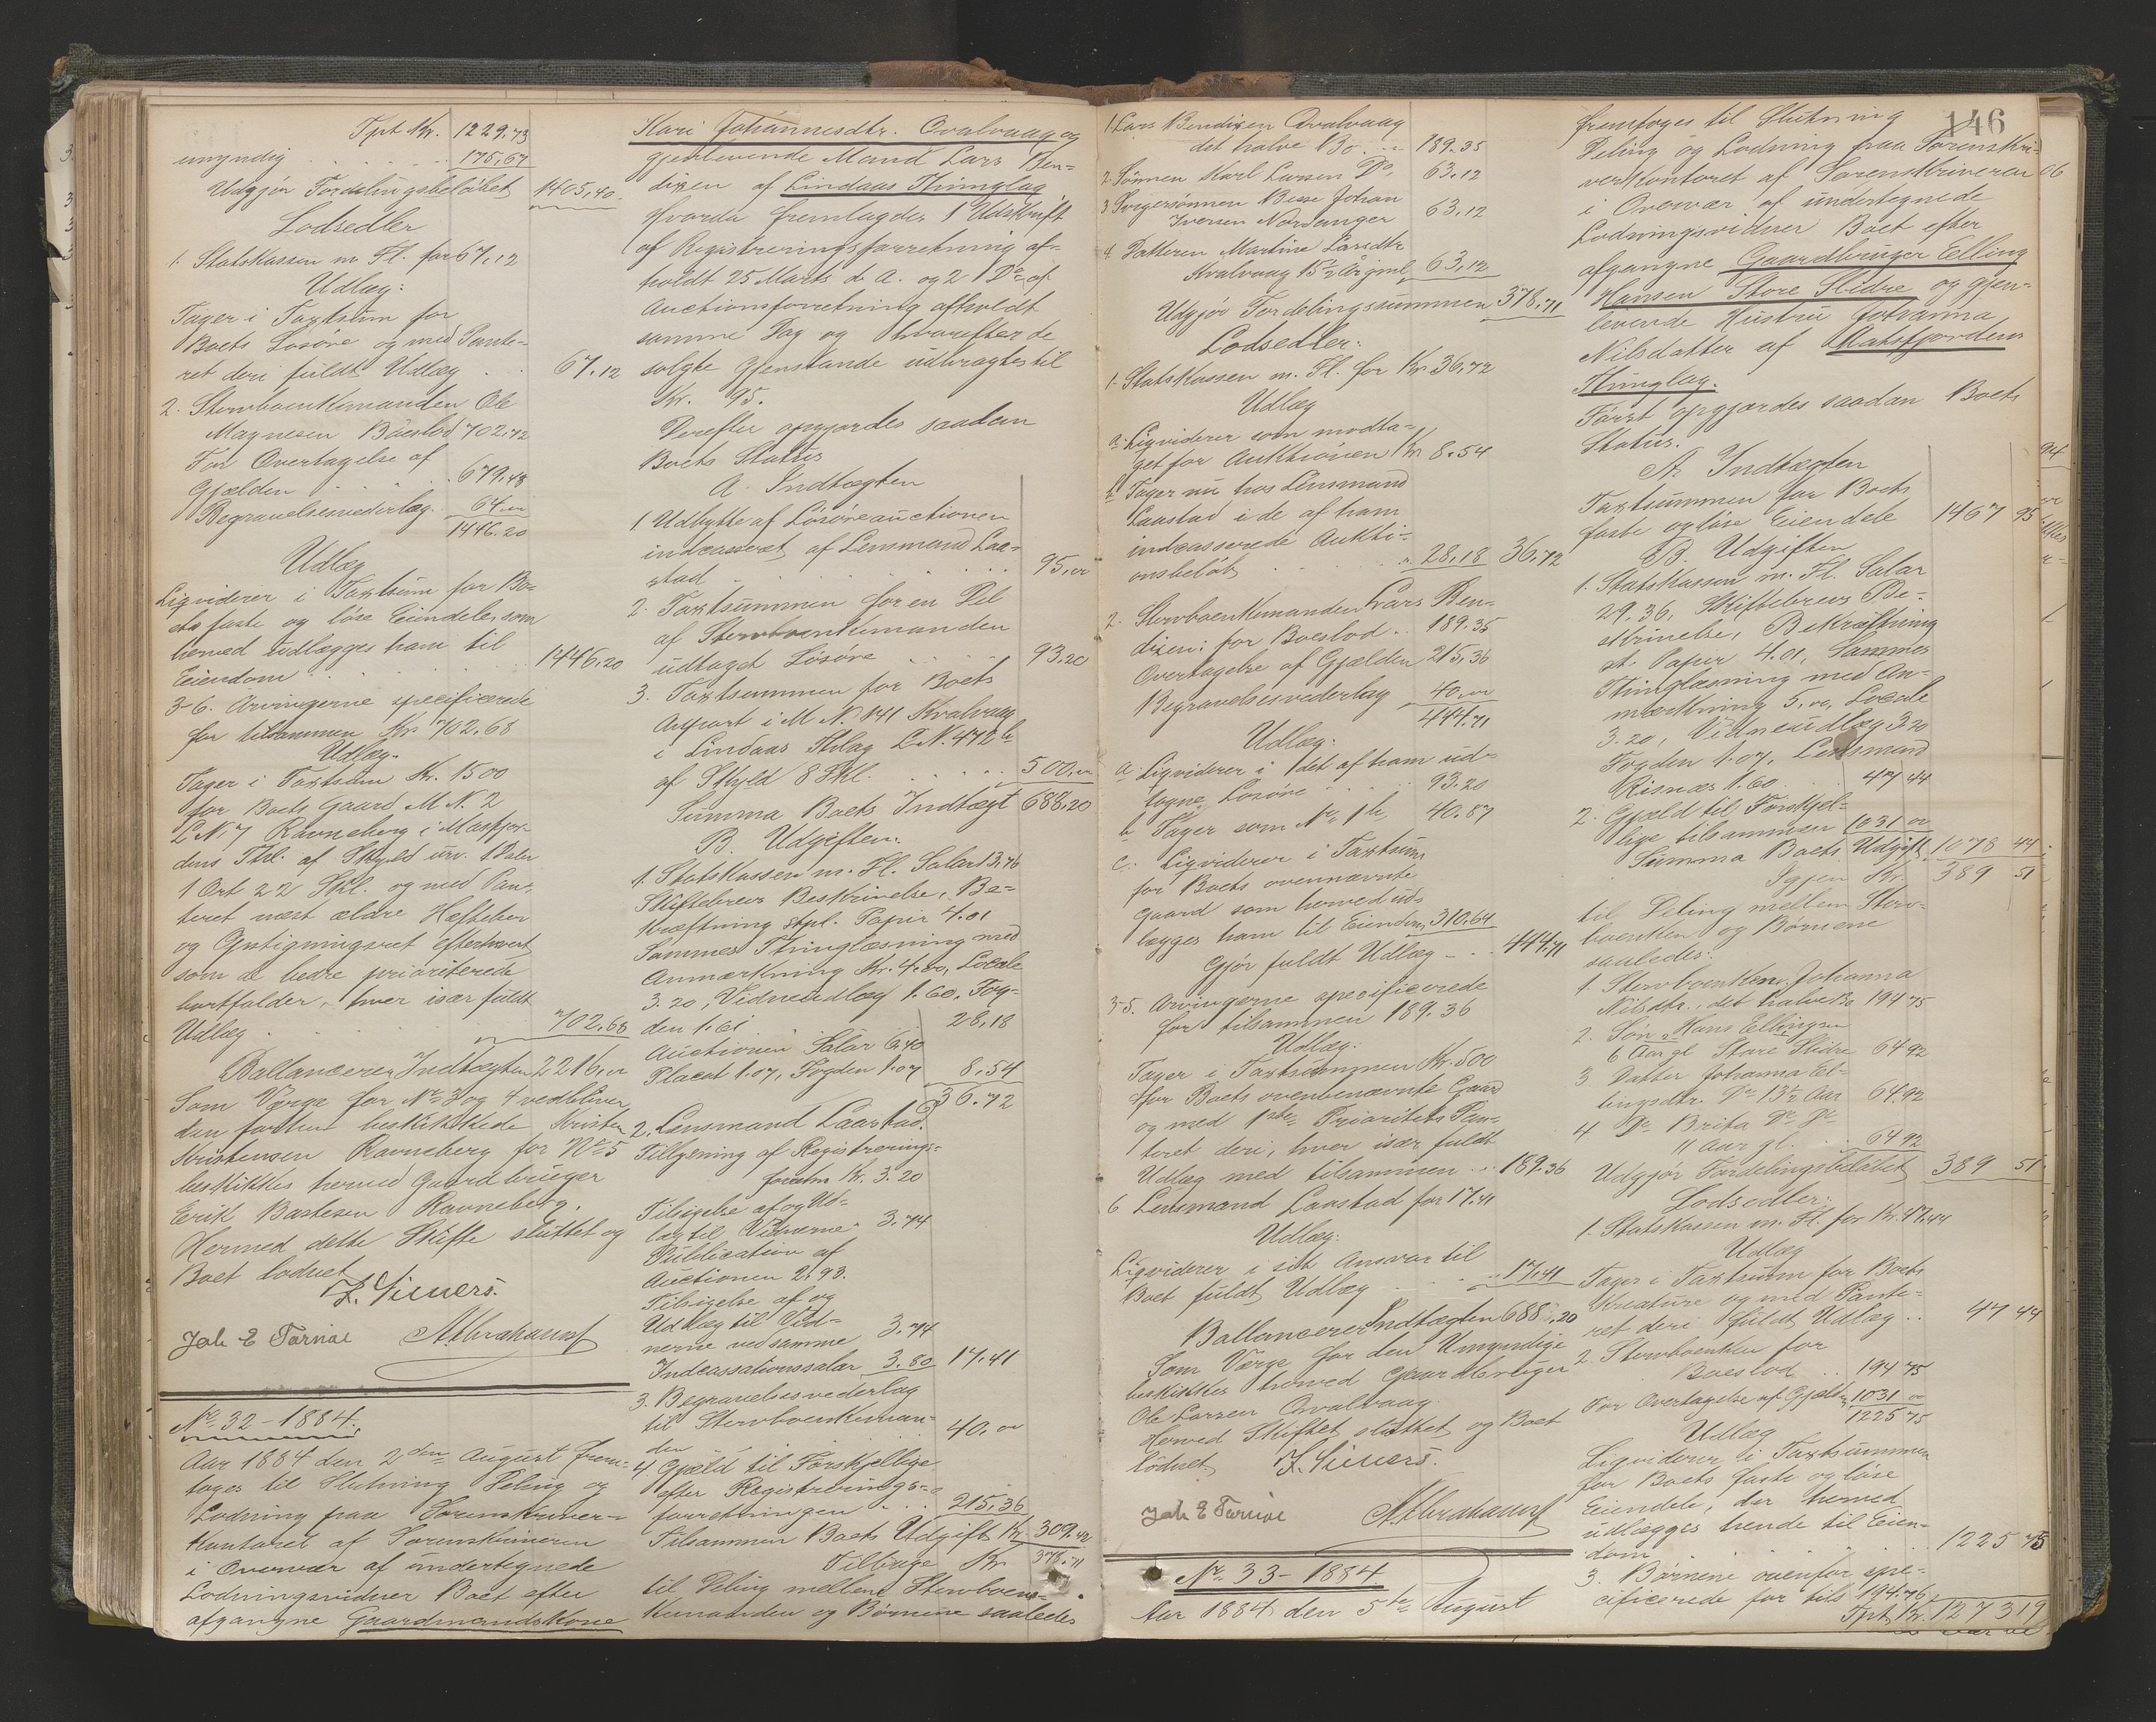 Tpt Kr. 1229.73
umyndig . . . . . 175,67
Udgjør Fordelingsbeløbet 1405,40.
Lodsedler
1. Statskassen m Fl. for 67.12
Udlæg:
Tager i Taxtsum for
Boets Løsøre og med Pante-
ret deri fuldt Udlæg . . 67.12
2. Stervboenkemanden Ole
Magnesen Boeslod 702.72
For Overtagelse af
Gjælden . . . . 679.48
Begravelsesvederlag. 64.00
1446.20
Udlæg
Liqviderer i Taxtsum for Bo-
ets faste og løse Eiendele som
herved udlægges ham til
Eiendom . . . . 1446,20
3-6. Arvingerne specificerede
for tilsammen Kr. 702.68
Udlæg.
Tager i Taxtsum Kr. 1500
for Boets Gaard M N. 2
L N. 7 Ravneberg i Masfjor-
dens Thl. af Skyld urv. 1 Daler
1 Ort 22 Skl. og med Pan-
teret næst ældre Heftelser
og Opstigningsret efterhvert
som de bedre prioriterede
bortfalder, hver især fuldt
Udlæg . . . . 702.68
Ballancerer Indtægten 2216,00
Som Værge for No 3 og 4 vedbliver
den forhen beskikkede Kristen
Kristensen Ravneberg for No 5
beskikkes herved Gaardbruger
Erik Bastesen Ravneberg.
Hermed dette Skifte sluttet og
Boet lodnet
Z. Sievers.
Jak E Tarnæs A. Abrahams
No 32 - 1884.
Aar 1884 den 2den August frem-
toges til Slutning Deling og
Lodning paa Sorenskriver-
kontoret af Sorenskriveren
i Overvær af undertegnede
Lodningsvidner Boet efter
afgangne Gaardmandskone
Kari Johannesdtr. Qvalvaag og
gjenlevende Mand Lars Ben-
dixen af Lindaas Thinglag
Hvorda fremlagdes 1 Udskrift
af Registreringsforretning af-
holdt 25 Marts d. A. og 2 Do af
Auctionsforretning afholdt
samme Dag og hvorefter de
solgte Gjenstande udbragtes til
Kr. 95.
Derefter opgjordes saadan
Boets Status
A. Indtægten
1 Udbytte af Løsøreauctionen
indcasseret af Lensmand Laa-
stad . . . . 95,00
2. Taxtsummen for en Del
af Stervboenkemanden
udtaget Løsøre . . . 93.20
3. Taxtsummen for Boets
Aapart i M N. 141 Kvalvaag
i Lindaas Thlag L N. 472 b
af Skyld 8 Skl. . . . 500,00
Summa Boets Indtægt 688,20
B. Udgiften:
1. Statskassen m. Fl. Salar 13,76
Skiftebrevs Beskrivelse, Be-
kræftning stpl. Papir 4.01
Sammes Thinglæsning med
Anmærkning Kr. 4.00, Locale
3.20, Vidneudlæg 1.60, Fog-
den 1.61 . . . 28,18
Auctionen Salar 6,40
Placat 1.07, Fogden 1.07 8.54
36.72
2. Lensmand Laastad:
Tillysning af Registrerings-
forretn Kr. 3.20
Tilsigelse af og Ud-
læg til Vidnerne 3.74
Publication af
Auctionen 2.93.
Tilsigelse af og
Udlæg til Vid-
nerne ved samme 3.74
Indcassationssalar 3.80 17.41
3. Begravelsesvederlag
til Stervboenkeman-
den 40.00
4 Gjæld til Forskjellige
efter Registrerings-
forretningen . . . 215,36
Tilsammen Boets Udgift Kr 309.49
Tilbage Kr. 378.71
til Deling mellem Stervboen-
kemanden og Børnene saaledes
1. Lars Bendixen Qvalvaag
det halve Bo . . 189.35
2. Sønnen Karl Larsen Do, 63.12
3 Svigersønnen Basse Johan
Iversen Nordanger 63,12
4 Datteren Martine Larsdtr
Kvalvaag 15 1/2 Aar gml 63,12
Udgjør Fordelingssummen 378,71
Lodsedler:
1. Statskassen m. Fl. for Kr. 36,72
Udlæg
a. Liqviderer som modta-
get for Auktionen Kr 8.54
b. Tager nu hos Lensmand
Laastad i de af ham
indcasserede Aukti-
onsbeløb . . . 28,18 36,72
2. Stervboenkemanden Lars Ben-
dixen: for Boeslod . . 189.35
Overtagelse af Gjælden 215,36
Begravelsesvederlag 40,00
444.71
Udlæg:
a. Liqviderer i det af ham ud-
tagne Løsøre . . . 93.20
b Tager som No 1 b, 40.87
c. Liqviderer i Taxtsum
for Boets ovennævnte
Gaard som herved ud-
lægges ham til Eiendom 310.64
Gjør fuldt Udlæg . . 444,71
3-5. Arvingerne specificerede
for tilsammen 189.36
Udlæg:
Tager i Taxtsummen Kr. 500
for Boets ovenbenævnte Gaard
og med 1ste Prioritets Pan-
teret deri, hver især fuldt
Udlæg med tilsammen . . 189.36
6 Lensmand Laastad for 17,41
Udlæg:
Liqviderer i sit Ansvar til
Boet fuldt Udlæg . . . 17,41
Ballancerer Indtægten 688,20
Som Værge for den Umyndige
beskikkes herved Gaardbruger
Ole Larsen Qvalvaag
Herved Skiftet sluttet og Boet
lodnet Z. Sievers.
Jak E Tarnæs A. Abrahams
No 33 - 1884
Aar 1884 den 5te August
146
fremtoges til Slutning
Deling og Lodning paa Sorenskri-
verkontoret af Sorenskriveren
i Overvær af undertegnede
Lodningsvidner Boet efter
afgangne Gaardbruger Elling
Hansen Store Slidre og gjen-
levende Hustru Johanna
Nilsdatter af Masfjordens
Thinglag.
Først opgjordes saadan Boets
Status.
A. Indtægten
Taxtsummen for Boets
faste og løse Eiendele 1467 95
B. Udgiften
1. Statskassen m. Fl. Salar
29.36, Skiftebrevs Be-
skrivelse, Bekræftning
st. Papir 4.01, Sammes
Thinglæsning med An-
mærkning 5,00, Locale
3.20, Vidneudlæg 3.20
Fogden 1.07, Lensmand
Risnæs 1.60 . . 47 44
2. Gjæld til Forskjel-
lige tilsammen 1031 00
Summa Boets Udgift 1078 44
Igjen Kr. 389 51
til Deling mellem Sterv-
boenken og Børnene
saaledes:
1. Stervboenken Johanna
Nilsdtr., det halve Bo 194 75
2. Søn Hans Ellingsen
6 Aar gl Store Slidre 64 92
3. Datter Johanna El-
lingsdtr. Do 13 1/2 Aar 64.92
4 Do Brita Do Do
11 Aar gl. . . 64 92
Udgjør Fordelingsbeløbet 389 51
Lodsedler:
1. Statskassen m. Fl. for Kr. 47.44
Udlæg
Tager i Taxtsum for Boets
Kreature og med Pante-
ret deri fuldt Udlæg . . 47 44
2. Stervboenken for
Boeslod . . 194 75
For Overtagelse af Gjælden 1031 00
1225 75
Udlæg
Liqviderer i Taxtsummen
for Boets faste og løse
Eiendele, der herved
udlægges hende til Eien-
dom . . . . 1225 75
3. Børnene ovenfor spe-
cificerede for tils 194.76
Tpt Kr. 1273 19